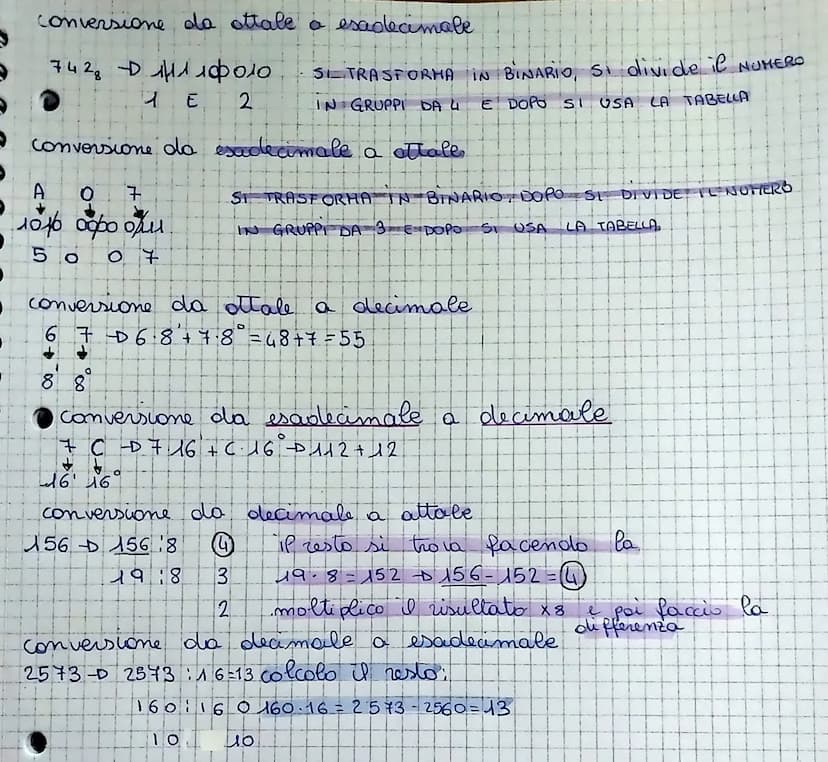 conversione da ottale a esadecimale
742₈ → 111100010 . SI TRASFORMA IN BINARIO, SI divide il NUMERO
1 E 2 IN GRUPPI DA 4 E DOPO SI USA LA TABELLA
conversione da esadecimale a ottale
A 0 7 SI TRASFORMA IN BINARIO, DOPO SI DIVIDE IL NUMERO
1010 0000 0111 IN GRUPPI DA 3 E DOPO SI USA LA TABELLA
5 0 0 7
conversione da ottale a decimale
6 7 → 6·8¹+7·8⁰=48+7=55
↓ ↓
8¹ 8⁰
conversione da esadecimale a decimale
7 C → 7·16¹+C·16⁰→112+12
↓ ↓
16¹ 16⁰
conversione da decimale a ottale
156 → 156:8 4 il resto si trova facendo la
19:8 3 19·8=152 → 156-152=4
2 moltiplico il risultato x8 e poi faccio la
differenza
conversione da decimale a esadecimale
2573 → 2573:16=13 calcolo il resto:
160:16 0 160·16=2573-2560=13
10 10